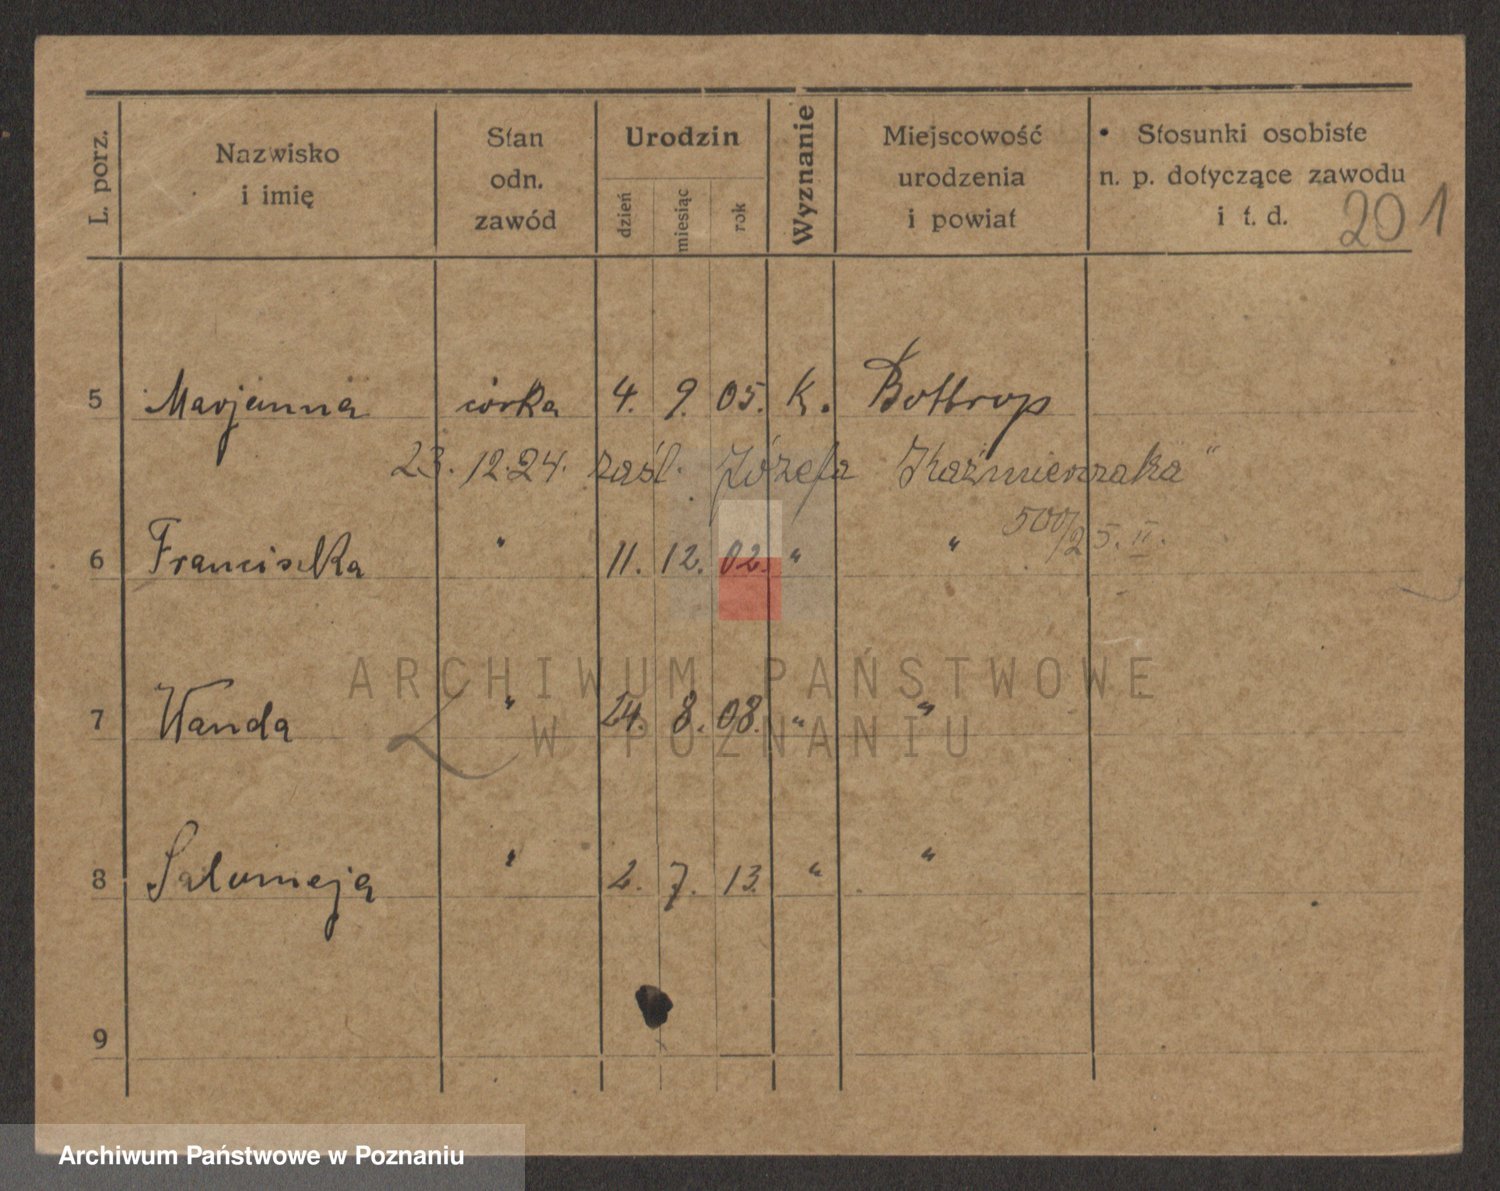 L. porz. Nazwisko i imię Stan odn. zawód Urodzin dzień miesiąc rok Wyznanie Miejscowość urodzenia i powiat Stosunki osobiste n. p. dotyczące zawodu i t. d. 201
5 Marjanna córka 4. 9. 05. k. Bottrop
23. 12. 24. zaśl. Józefa Kaźmierzaka"
500/25. II.
6 Franciszka " 11. 12. 02. " "
ARCHIWUM PAŃSTWOWE
7 Wanda " 24. 8. 08. " "
W POZNANIU
8 Salomeja " 2. 7. 13. " "
9
Archiwum Państwowe w Poznaniu